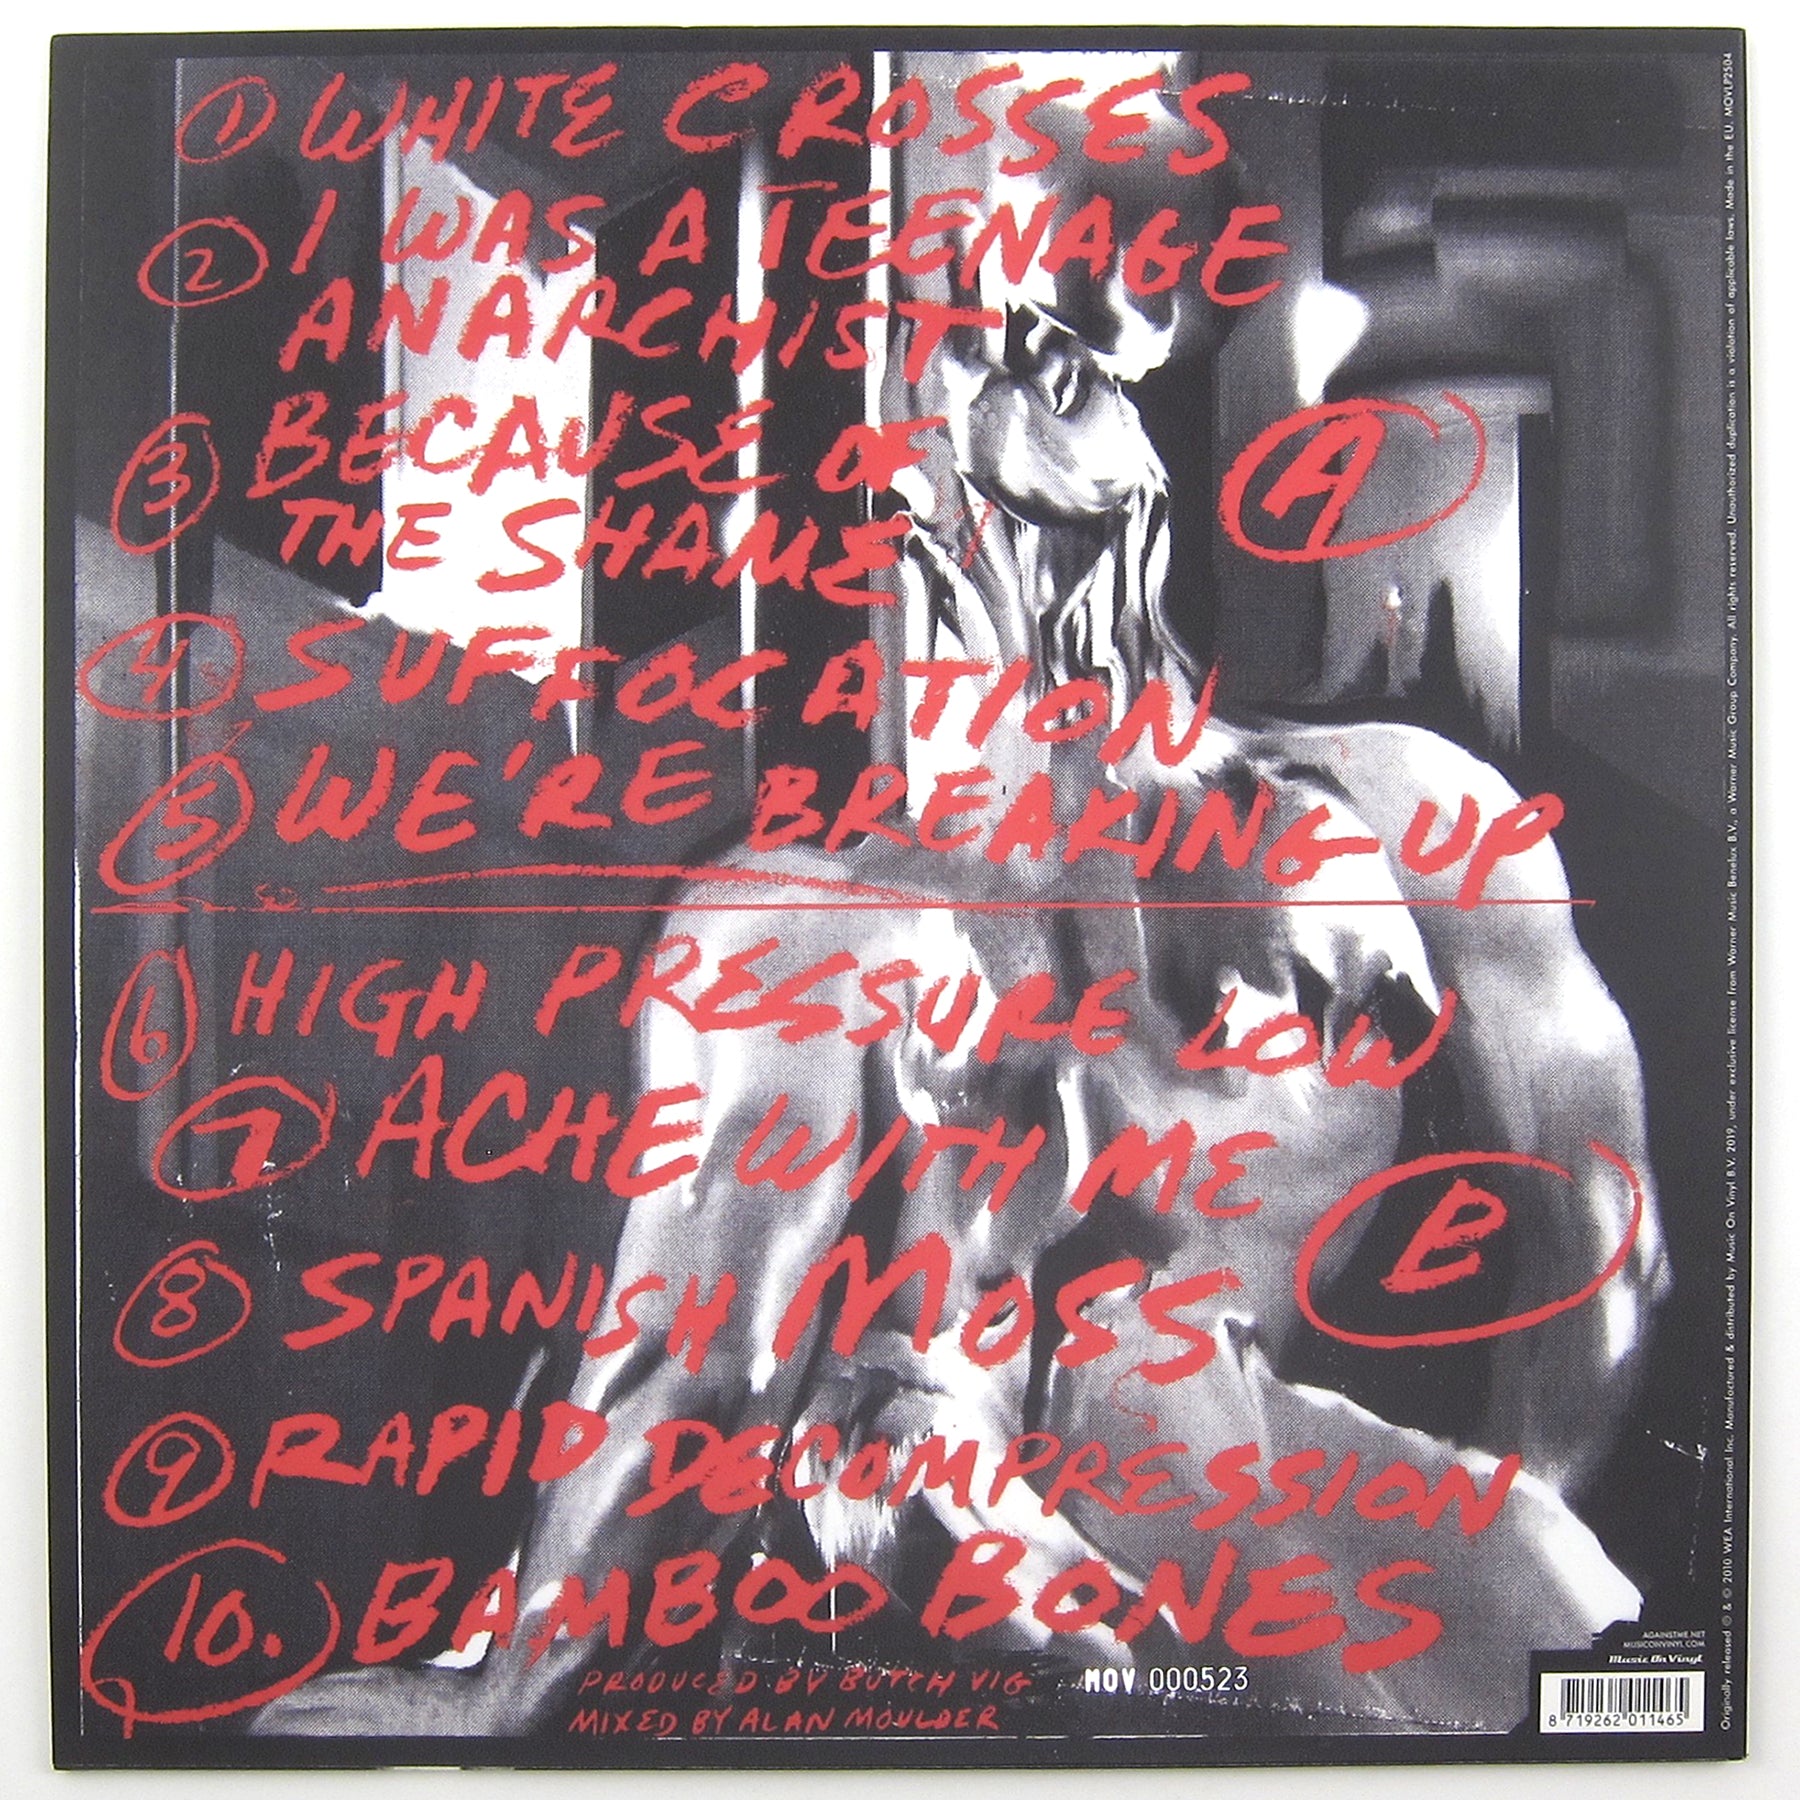 1 WHITE CROSSES
2 I WAS A TEENAGE
ANARCHIST
3 BECAUSE OF
THE SHAME
A
4 SUFFOCATION
5 WE'RE BREAKING UP
6 HIGH PRESSURE LOW
7 ACHE WITH ME
B
8 SPANISH MOSS
9 RAPID DECOMPRESSION
10. BAMBOO BONES
PRODUCED BY BUTCH VIG
MIXED BY ALAN MOULDER
MOV 000523
AGAINSTME.NET
MUSICONVINYL.COM
Music On Vinyl
8 719262 011465
Originally released ℗ & © 2010 WEA International Inc. Manufactured & distributed by Music On Vinyl B.V. 2019, under exclusive license from Warner Music Benelux B.V., a Warner Music Group Company. All rights reserved. Unauthorized duplication is a violation of applicable laws. Made in the EU. MOVLP2504